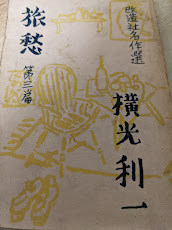 改造社名作選
旅愁
第三篇
横光利一